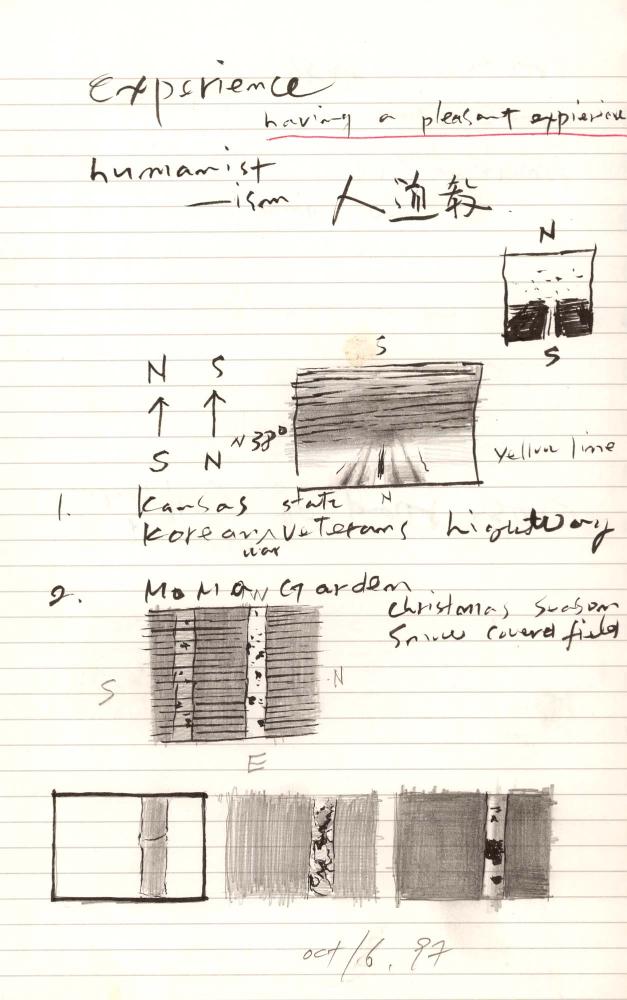 Experience
having a pleasant expierience
humanist
—ism 人道教
N
S
S
N S
S N
N 38°
yellow line
N
1. Kansas state
Korean war veterans hightway
2. MoMA Garden
Christmas season
Snow covered field
W
S
N
E
oct/6. 97